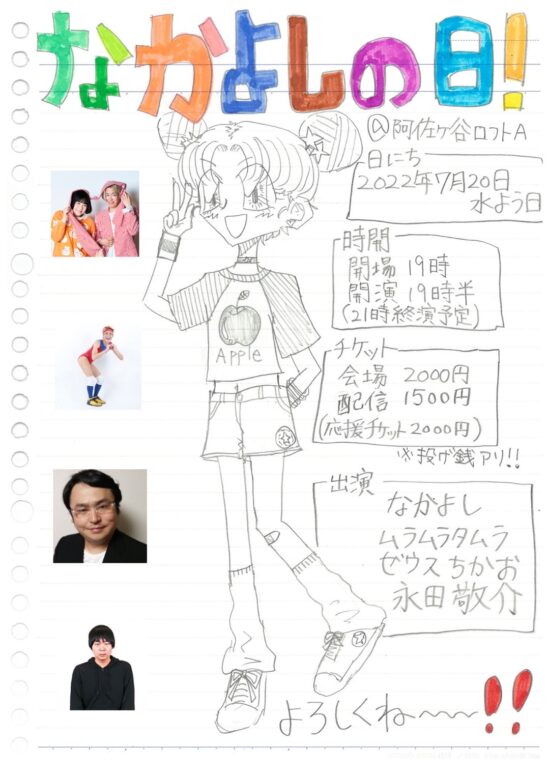 なかよしの日!
@阿佐ヶ谷ロフトA
日にち
2022年7月20日
水よう日
時間
開場 19時
開演 19時半
(21時終演予定)
Apple
チケット
会場 2000円
配信 1500円
(応援チケット2000円)
※投げ銭アリ!!
出演
なかよし
ムラムラタムラ
ゼウスちかお
永田敬介
よろしくね〜〜!!